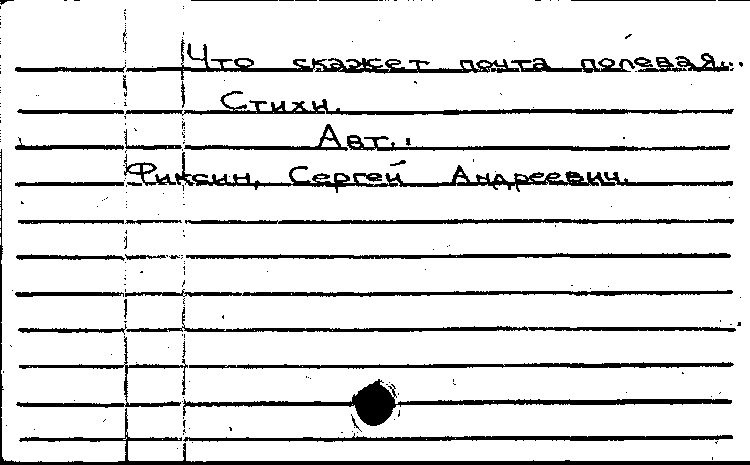 Что скажет почта полевая...
Стихи.
Авт.:
Фиксин, Сергей Андреевич.